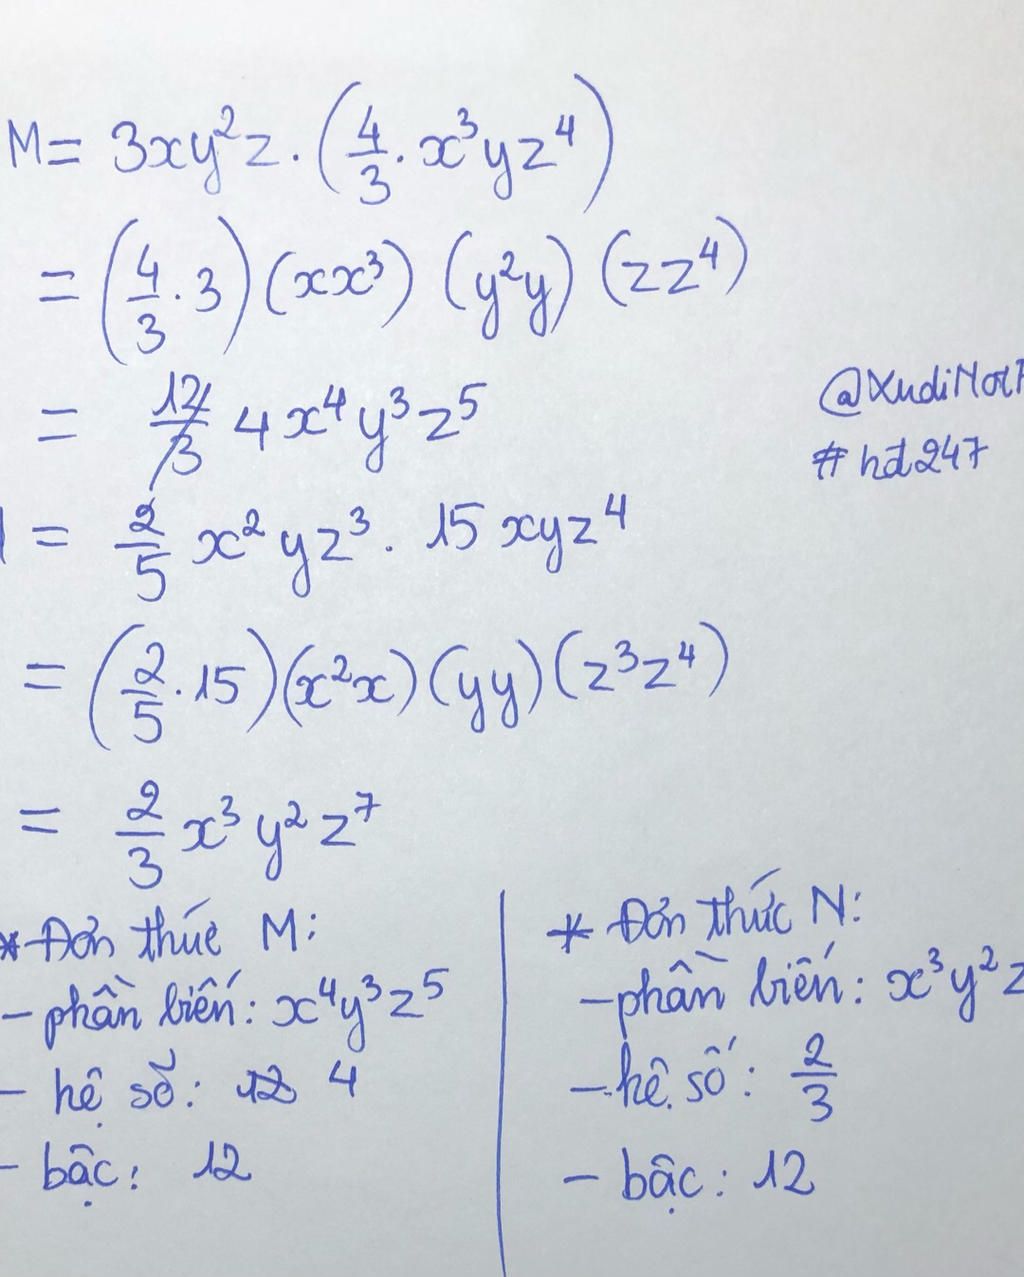 M = 3xy²z . (4/3 . x³yz⁴)
= (4/3 . 3) (xx³) (y²y) (zz⁴)
= 12/3 4x⁴y³z⁵
@XudiNor
#hđ247
= 2/5 x²yz³ . 15 xyz⁴
= (2/5 . 15)(x²x)(yy)(z³z⁴)
= 2/3 x³y²z⁷
* Đơn thức M:
- phần biến: x⁴y³z⁵
- hệ số: 12 4
- bậc: 12
* Đơn thức N:
- phần biến: x³y²z
- hệ số: 2/3
- bậc: 12